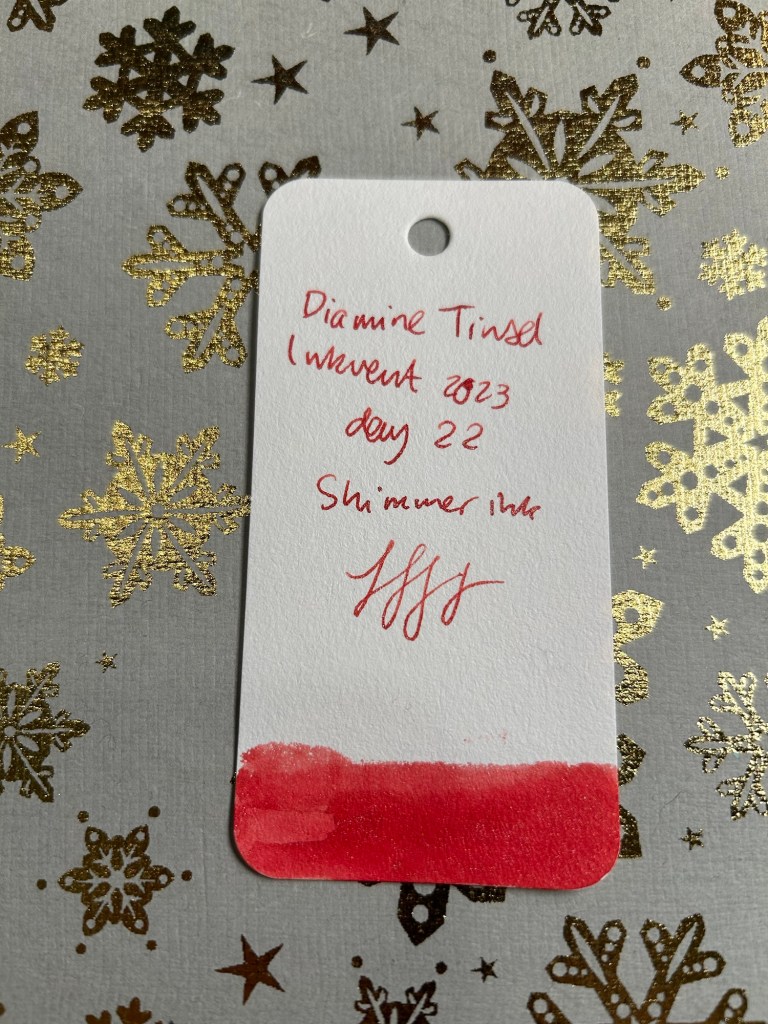 Diamine Tinsel
Inkvent 2023
day 22
Shimmer ink